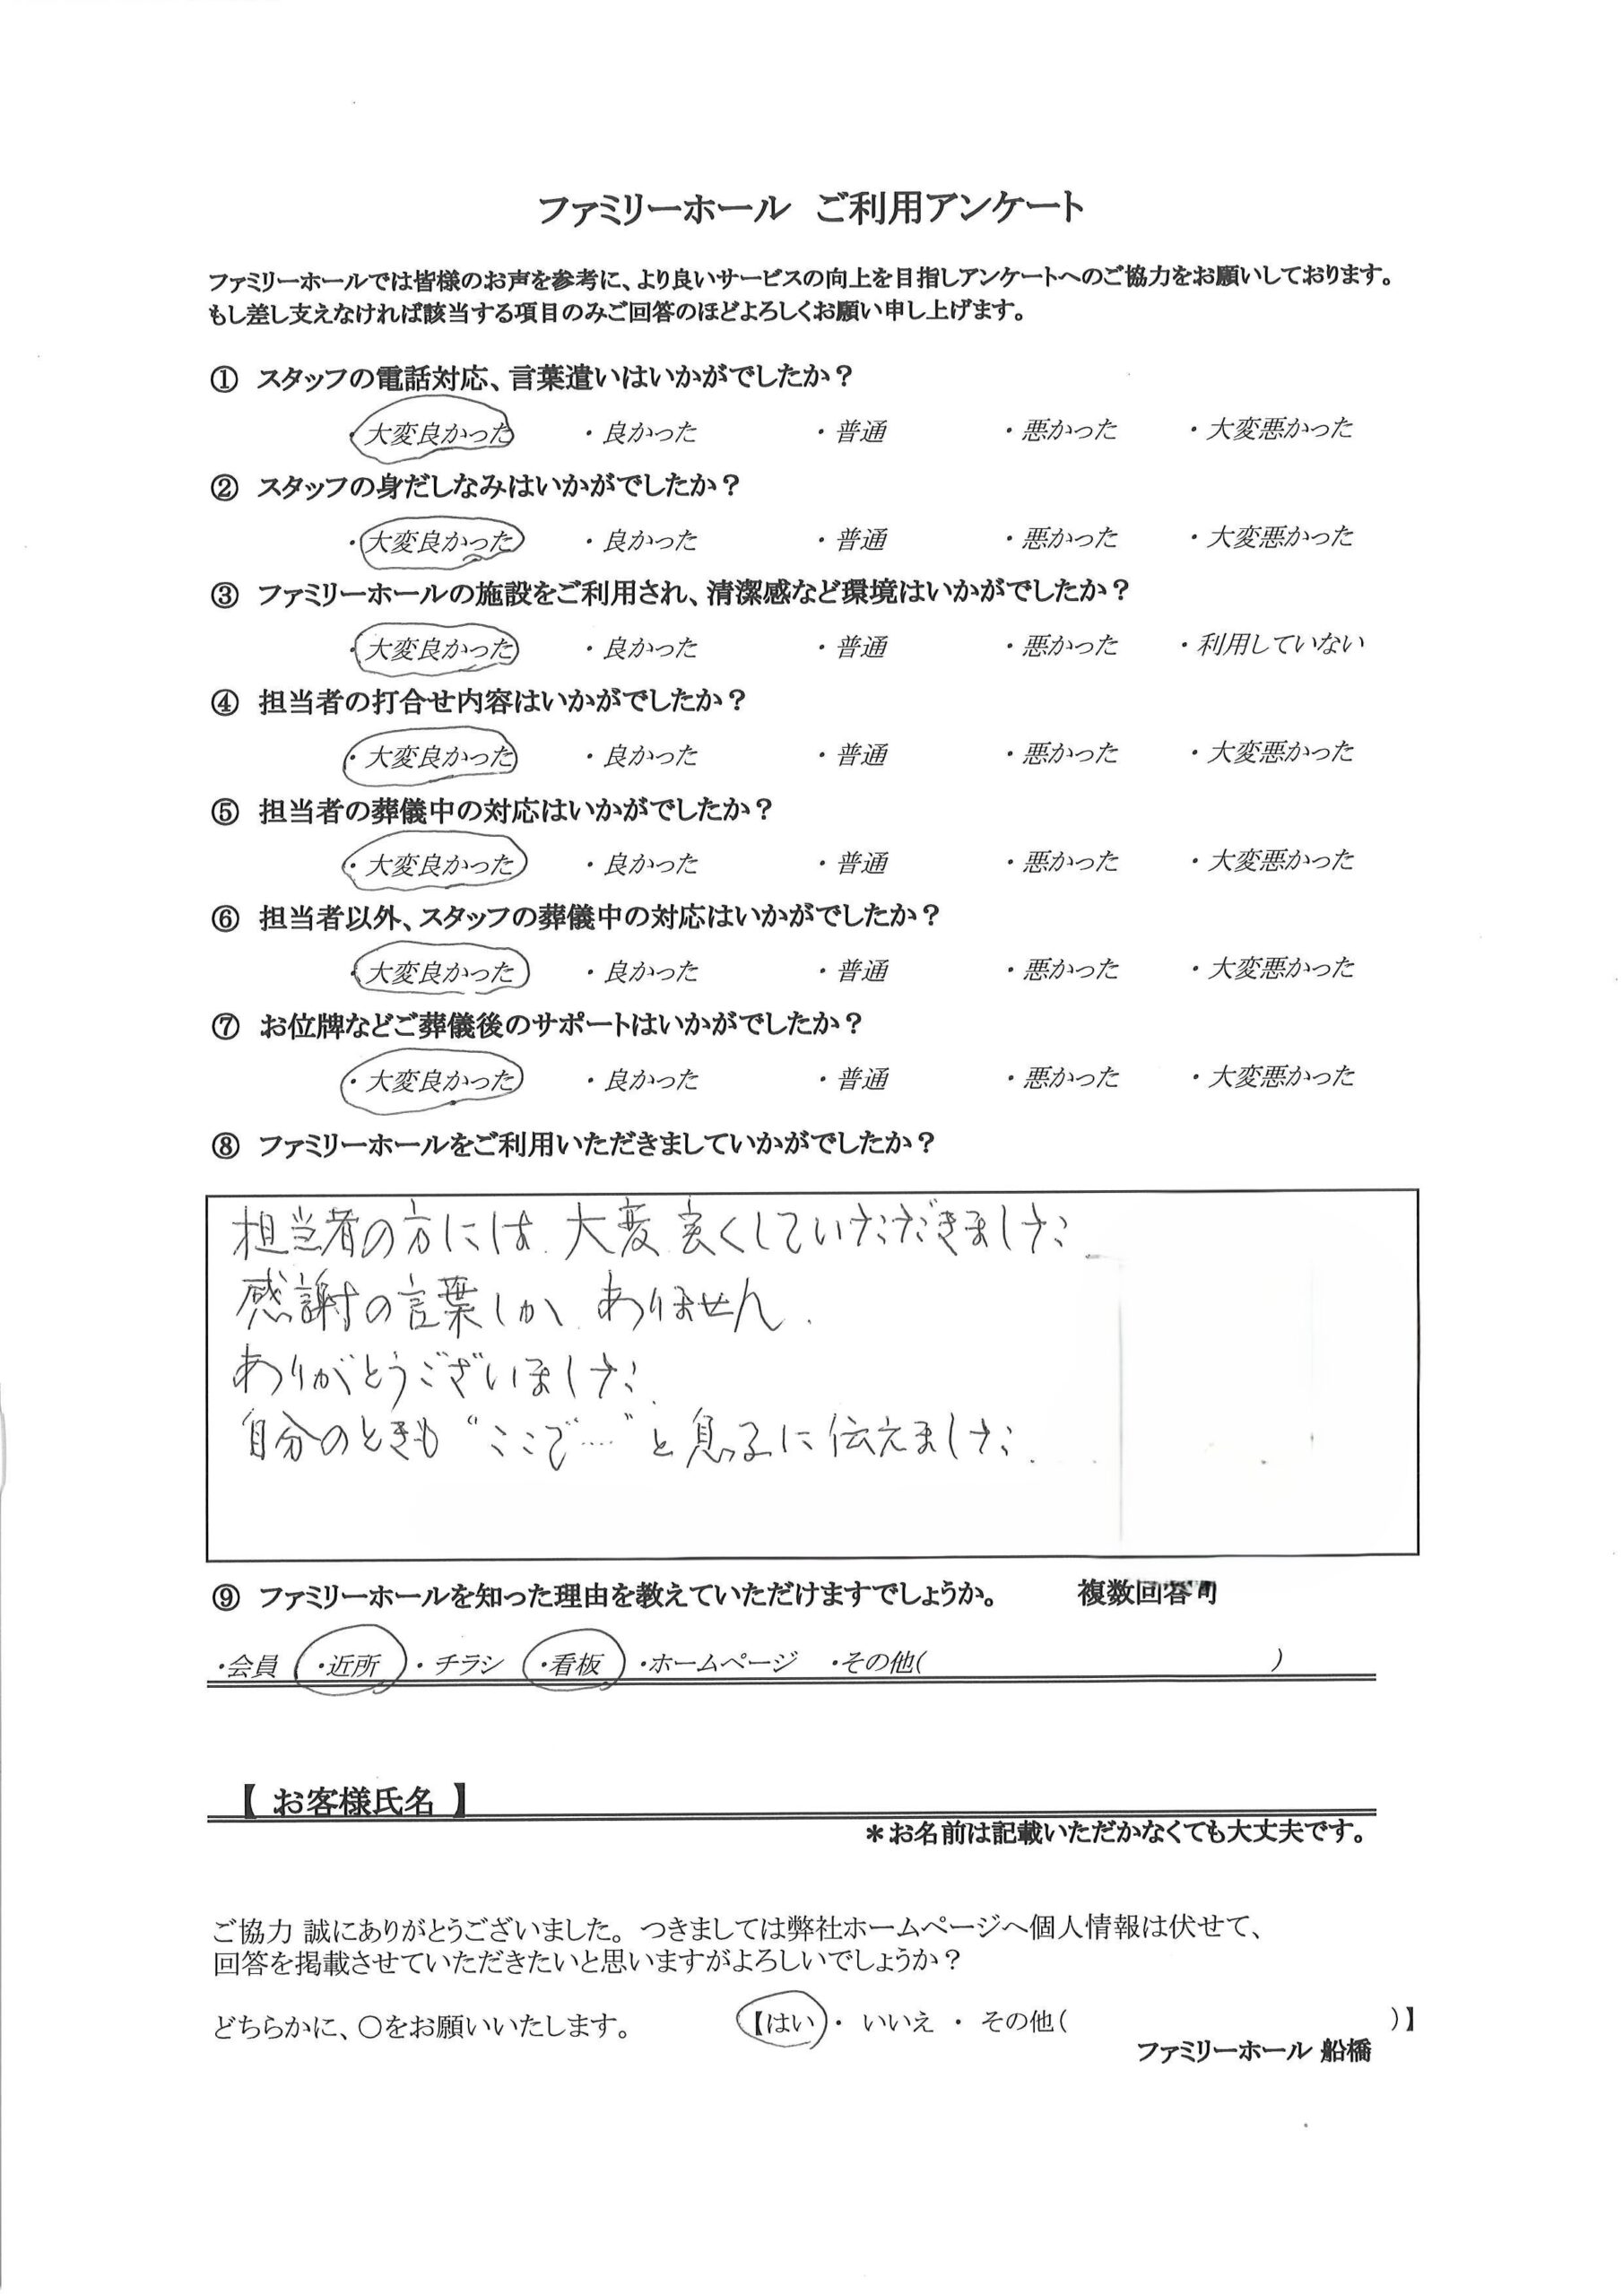 ファミリーホール ご利用アンケート
ファミリーホールでは皆様のお声を参考に、より良いサービスの向上を目指しアンケートへのご協力をお願いしております。
もし差し支えなければ該当する項目のみご回答のほどよろしくお願い申し上げます。
① スタッフの電話対応、言葉遣いはいかがでしたか？
・大変良かった ・良かった ・普通 ・悪かった ・大変悪かった
② スタッフの身だしなみはいかがでしたか？
・大変良かった ・良かった ・普通 ・悪かった ・大変悪かった
③ ファミリーホールの施設をご利用され、清潔感など環境はいかがでしたか？
・大変良かった ・良かった ・普通 ・悪かった ・利用していない
④ 担当者の打合せ内容はいかがでしたか？
・大変良かった ・良かった ・普通 ・悪かった ・大変悪かった
⑤ 担当者の葬儀中の対応はいかがでしたか？
・大変良かった ・良かった ・普通 ・悪かった ・大変悪かった
⑥ 担当者以外、スタッフの葬儀中の対応はいかがでしたか？
・大変良かった ・良かった ・普通 ・悪かった ・大変悪かった
⑦ お位牌などご葬儀後のサポートはいかがでしたか？
・大変良かった ・良かった ・普通 ・悪かった ・大変悪かった
⑧ ファミリーホールをご利用いただきましていかがでしたか？
担当者の方には、大変良くしていただきました
感謝の言葉しか、ありません.
ありがとうございました.
自分のときも“ここで…”と息子に伝えました.
⑨ ファミリーホールを知った理由を教えていただけますでしょうか。 複数回答可
・会員 ・近所 ・チラシ ・看板 ・ホームページ ・その他( )
【 お客様氏名 】
＊お名前は記載いただかなくても大丈夫です。
ご協力 誠にありがとうございました。つきましては弊社ホームページへ個人情報は伏せて、
回答を掲載させていただきたいと思いますがよろしいでしょうか？
どちらかに、〇をお願いいたします。 【はい ・ いいえ ・ その他( )】
ファミリーホール 船橋